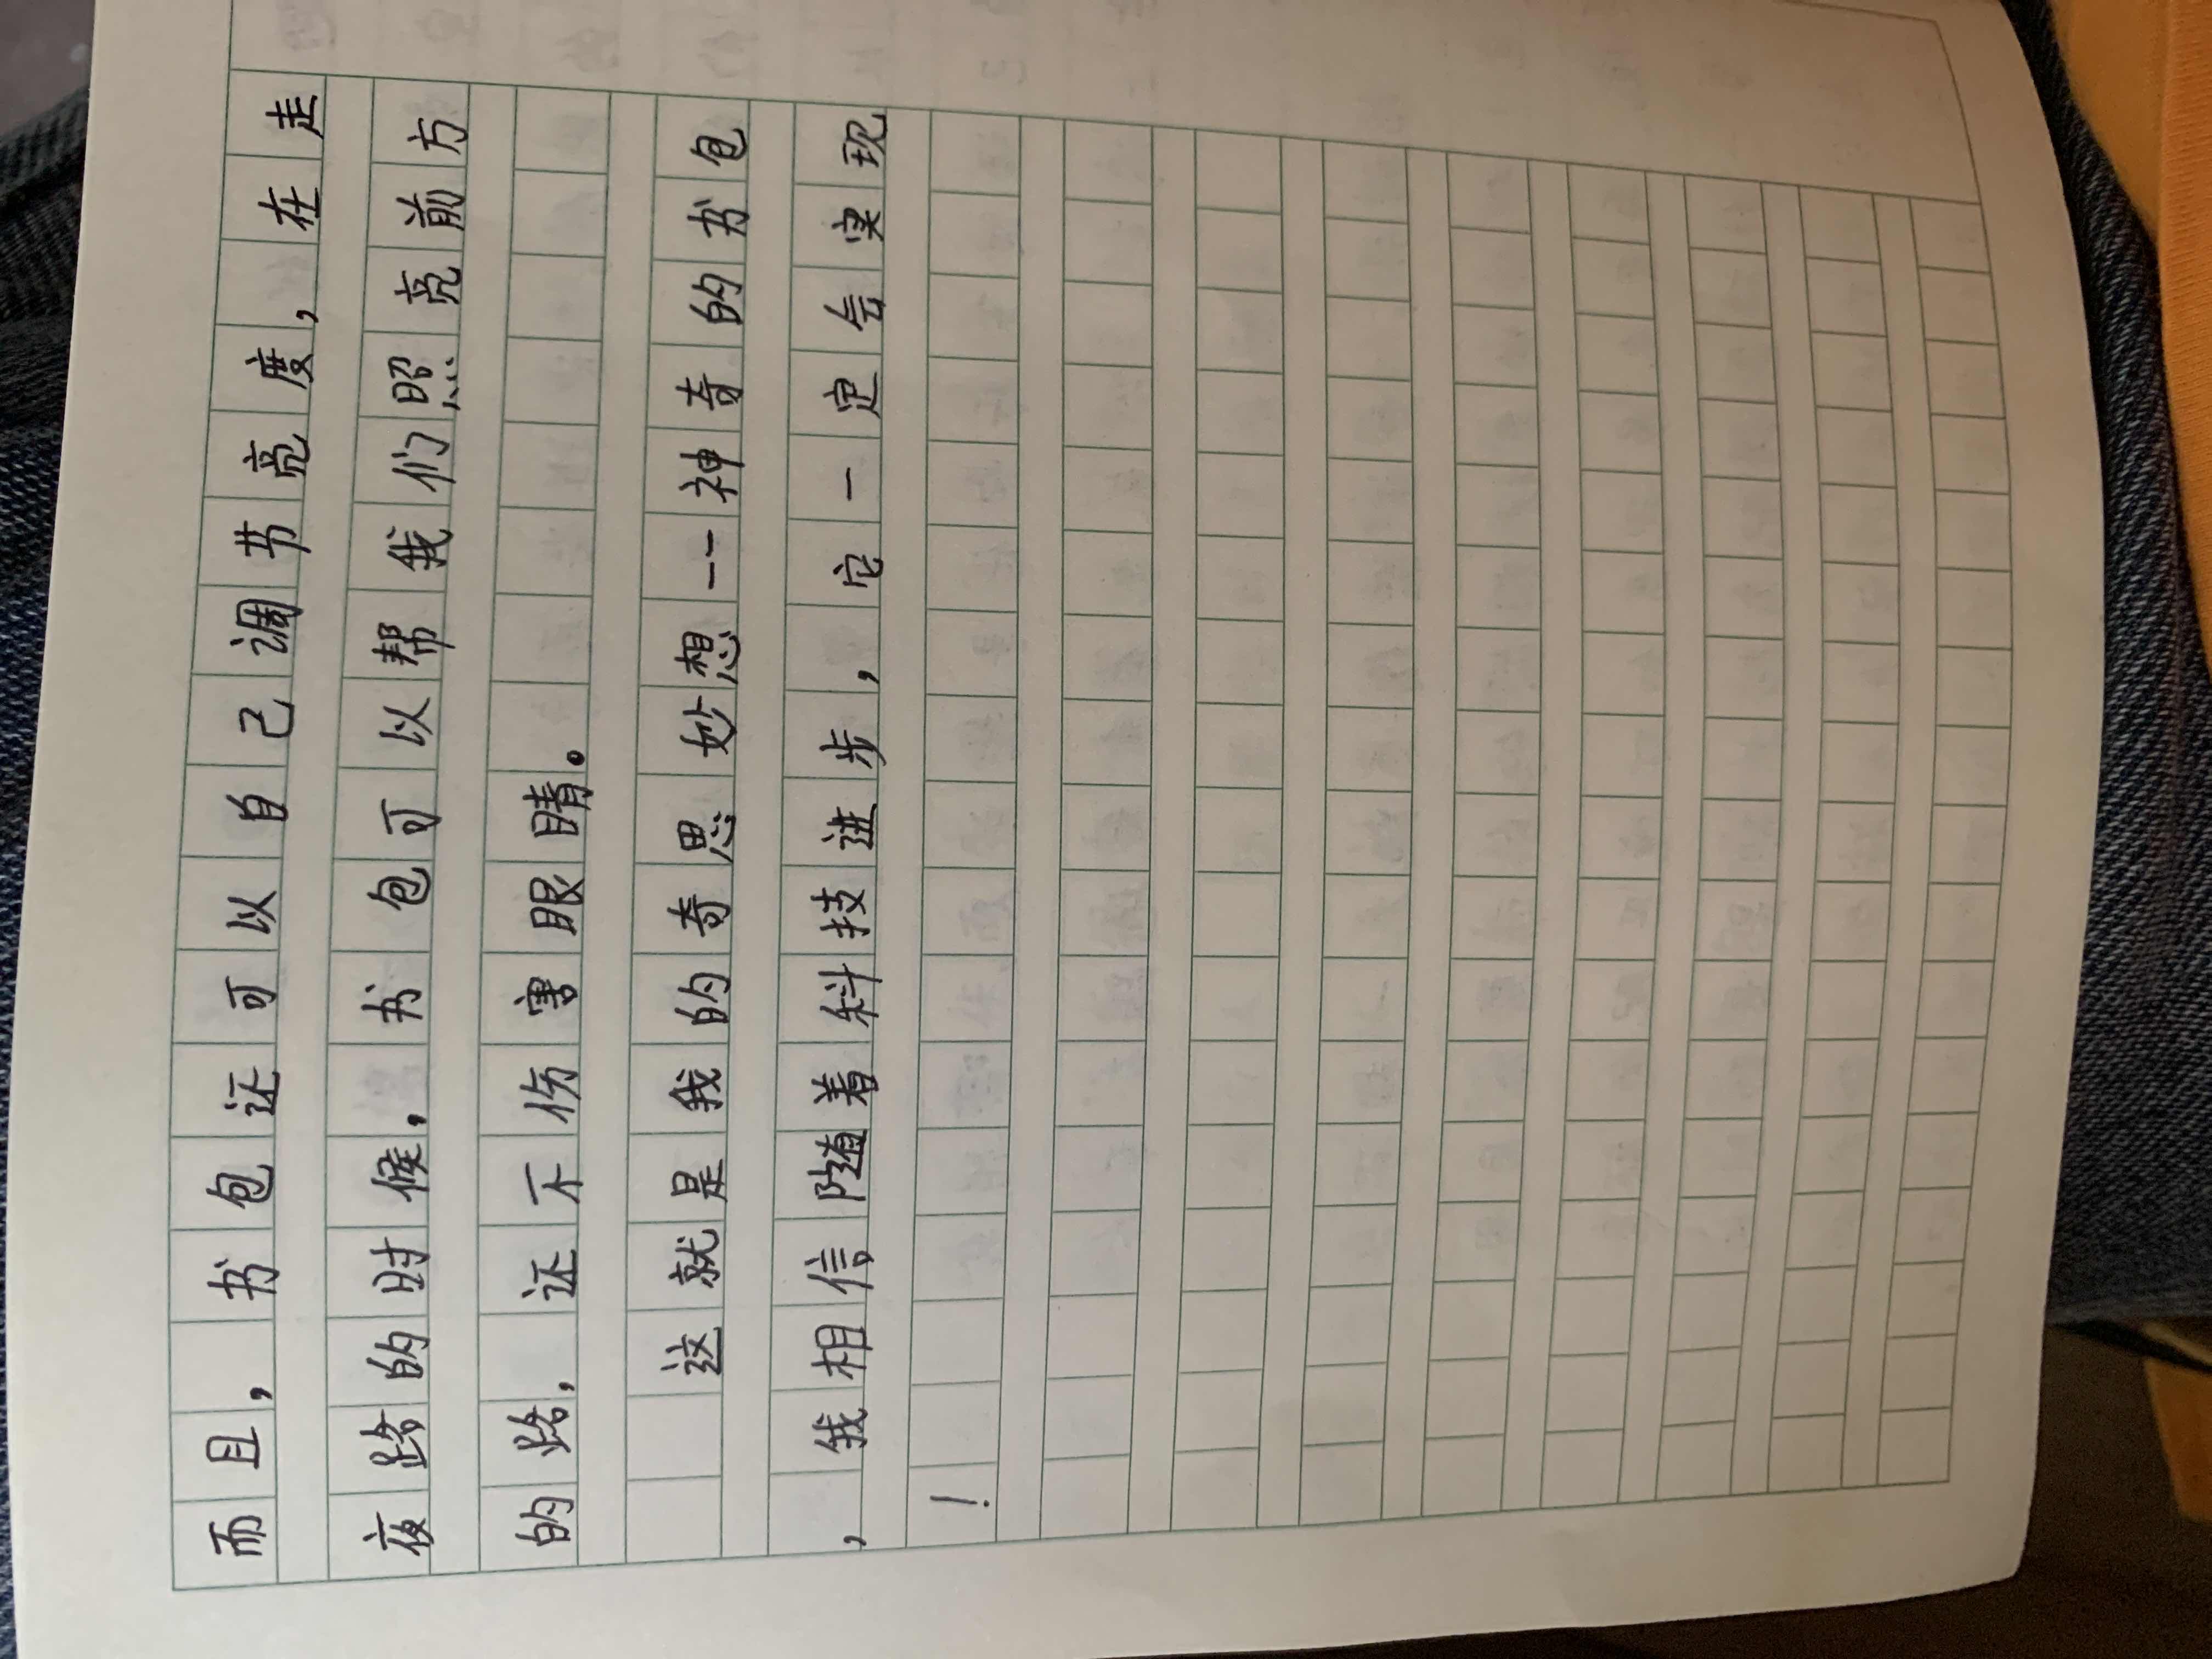 而且，书包还可以自己调节亮度，在走
夜路的时候，书包可以帮我们照亮前方
的路，还不伤害眼睛。
这就是我的奇思妙想——神奇的书包
，我相信随着科技进步，它一定会实现
！